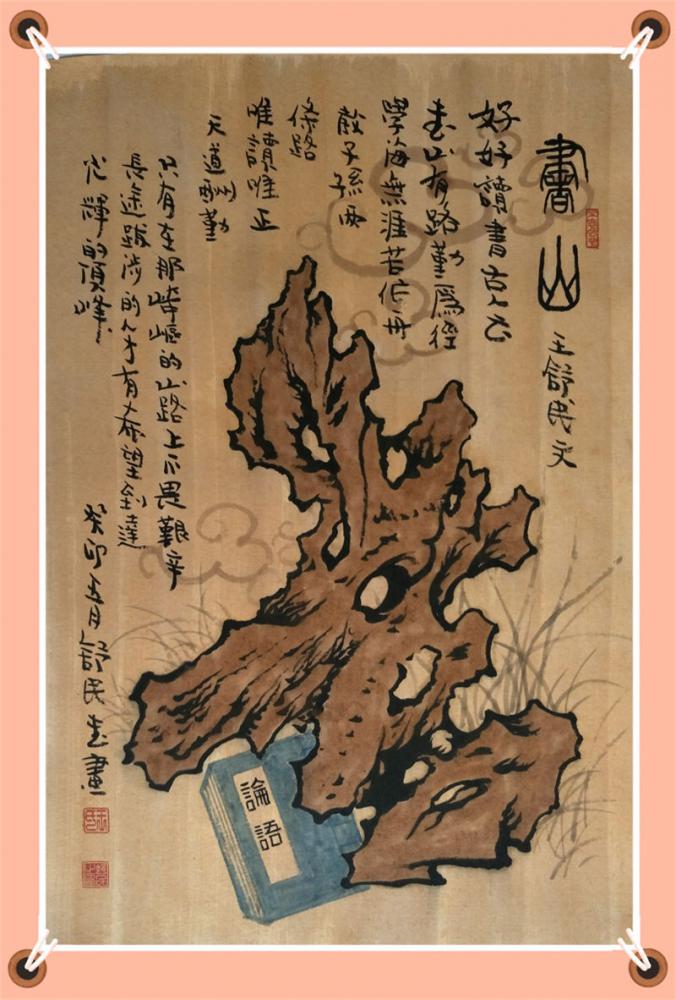 書山
王舒民文
好好讀書古人云
書山有路勤爲徑
學海無涯苦作舟
教子孫两
條路
唯讀唯正
天道酬勤
只有在那崎嶇的山路上不畏艱辛
長途跋涉的人才有希望到達
光輝的頂峰
癸卯五月舒民書畫
論語